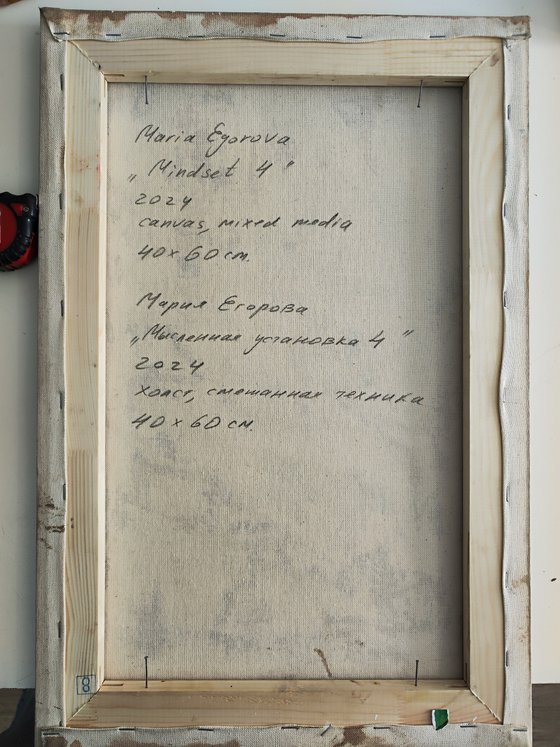 Maria Egorova
„Mindset 4"
2024
canvas, mixed media
40 x 60 cm.
Мария Егорова
„Мысленная установка 4"
2024
холст, смешанная техника
40 x 60 см.
8